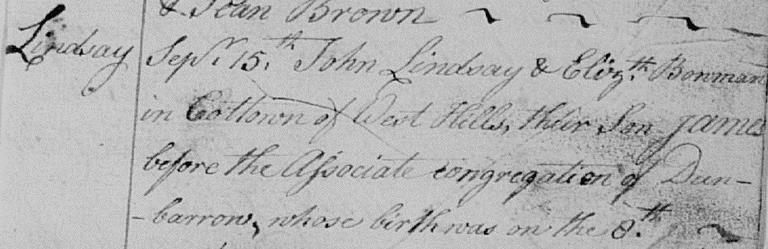 & Jean Brown
Lindsay Sepr. 15.th John Lindsay & Elizth. Bowman
in Cottown of West Hills, their Son James
before the Associate congregation of Dun-
-barrow, whose birth was on the 8.th